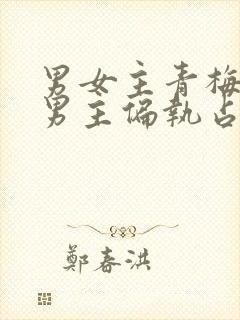 男女主青梅
男主偏執占
鄭春洪